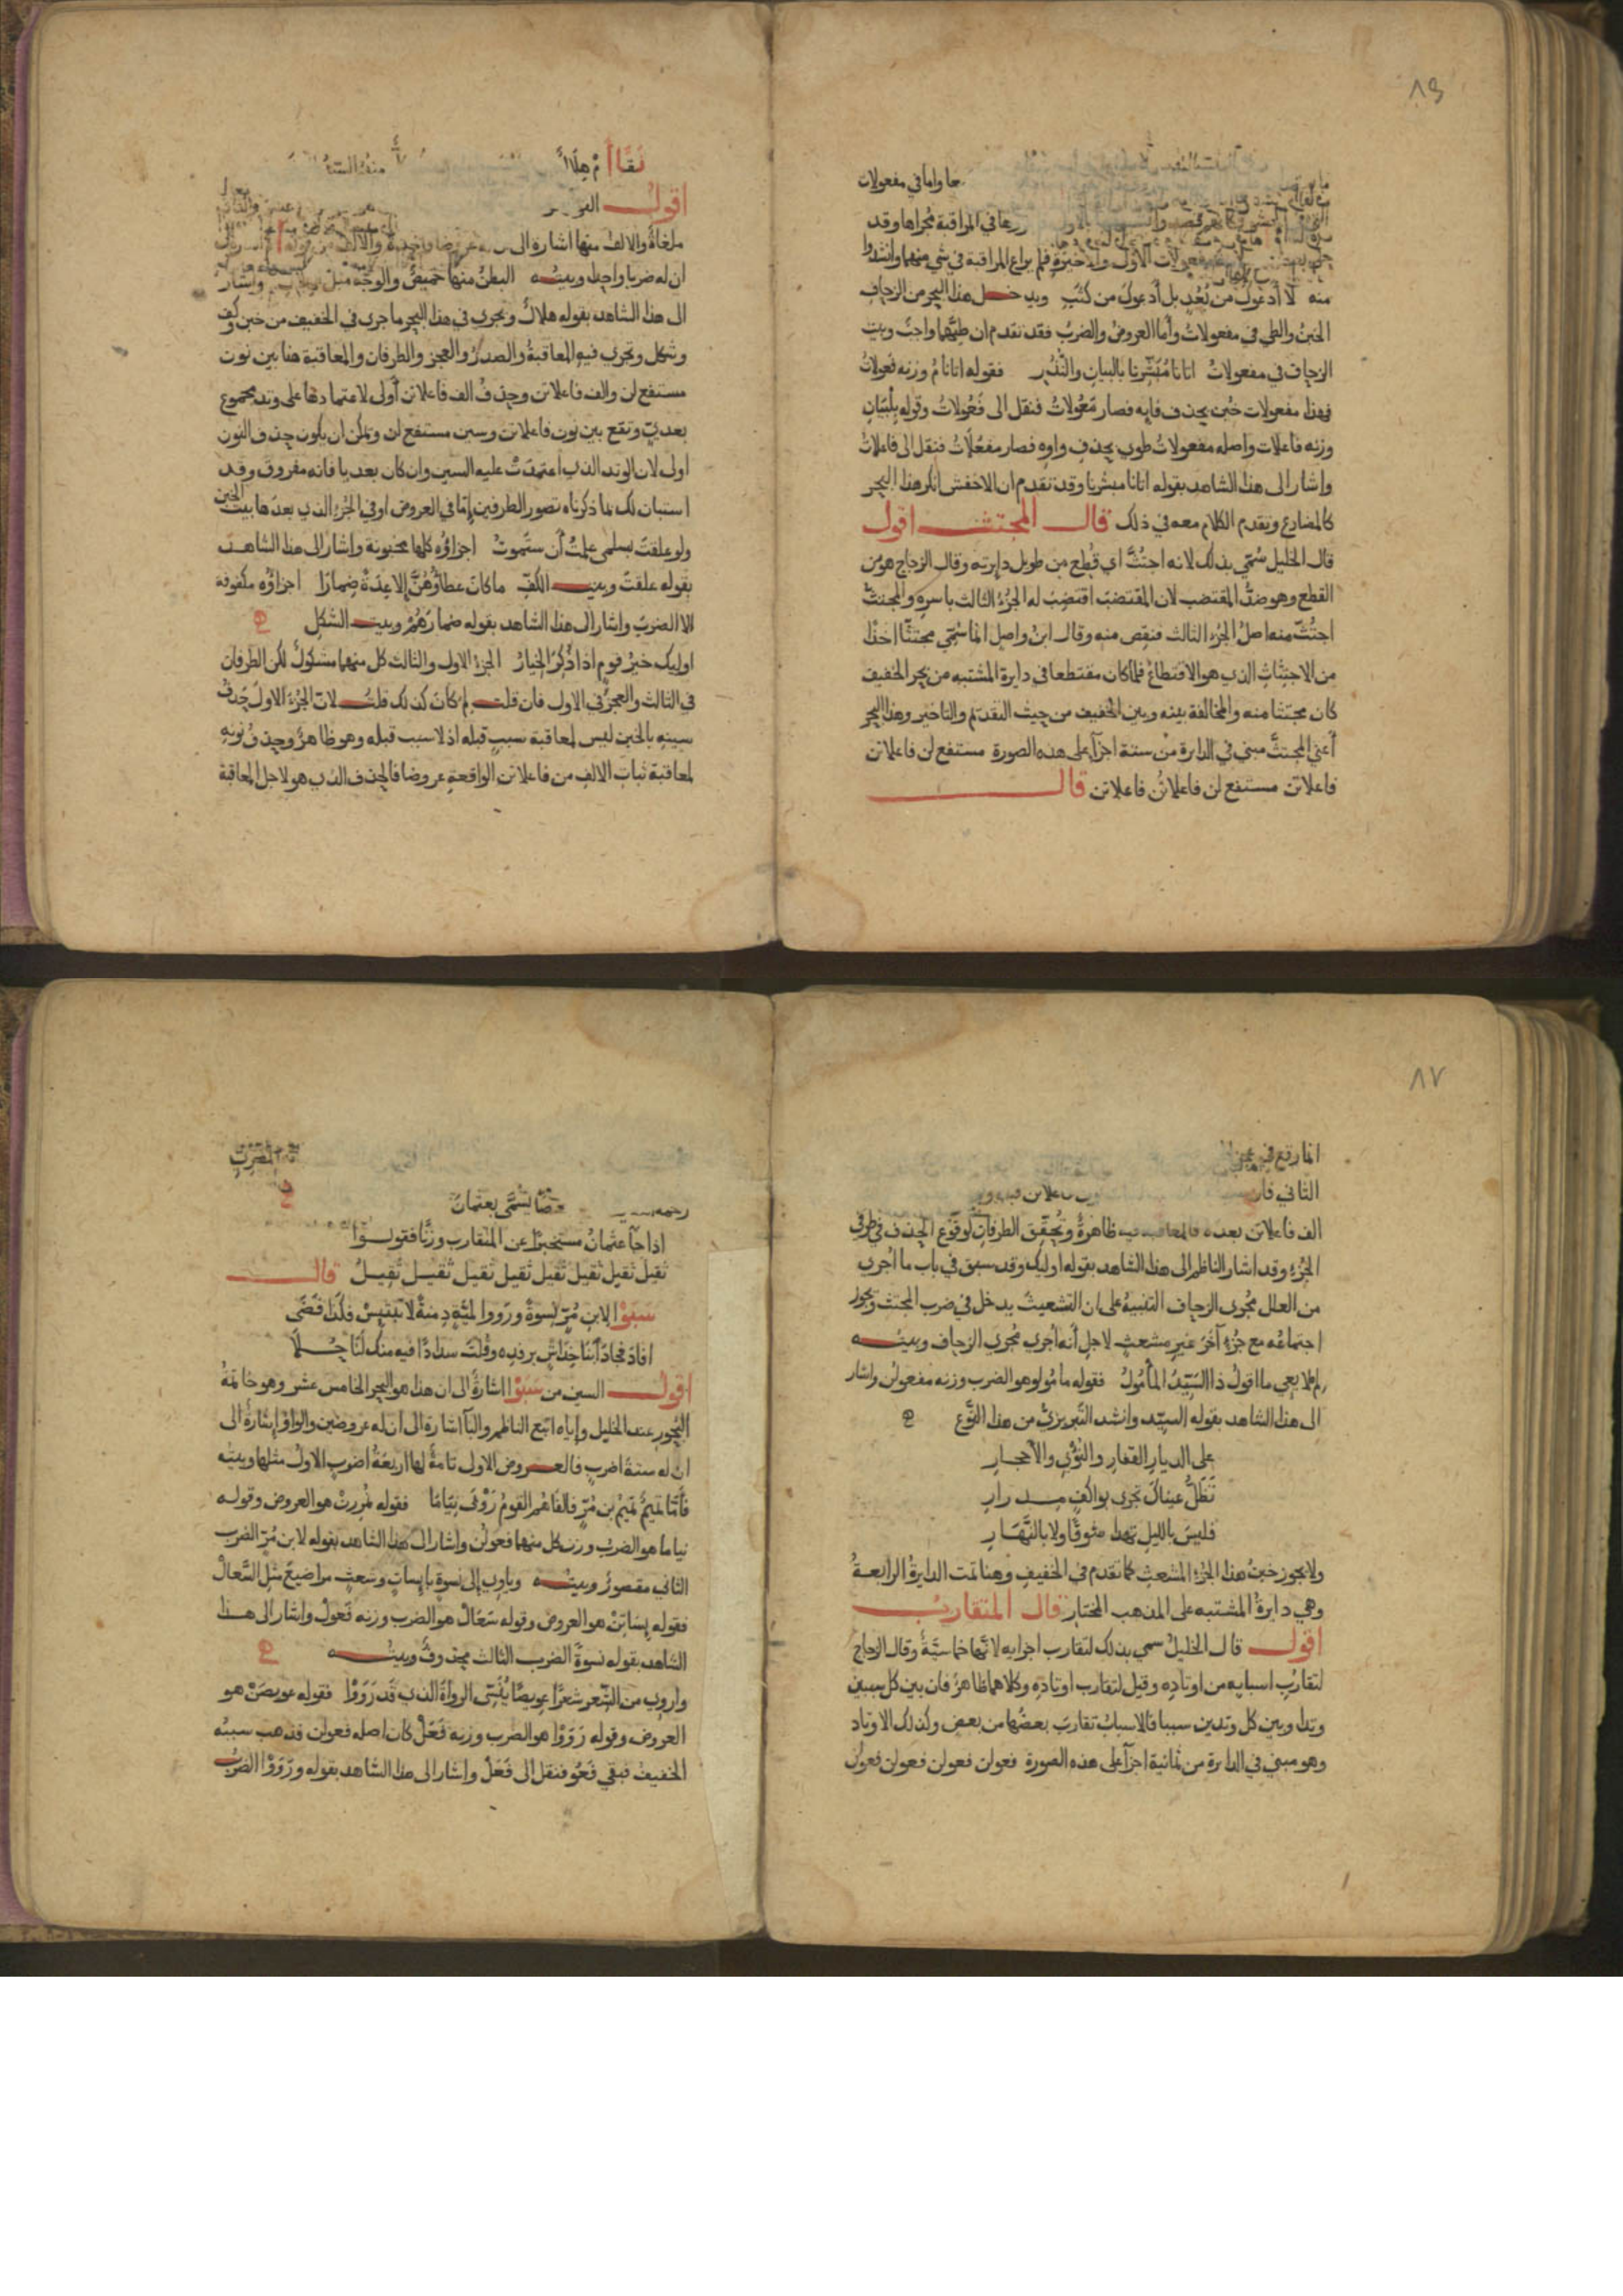 ٨٦
حا واما في مفعولات
في المراقبة مجراها وقد
مفعولات الأول ولا خبرة فلم يراع المراقبة في شي منهما وانشدوا
منه لا أدعوك من بُعُدٍ بل أدعوك من كثَبِ ويدخل هذا البحر من الزحاف
الخبنُ والطي في مفعولاتُ وأما العروض والضربُ فقد تقدم ان طيَّهما واجبٌ وبيت
الزحاف في مفعولاتُ اتانا مُبَشِّرنا بالبيانِ والنُّذُرِ فقوله اتانا مُ وزنه فعولاتُ
فهذا مفعولات خُبن بحذف فايه فصار مَعُولاتُ فنقل الى فَعُولاتُ وقوله بِلْبَيَانِ
وزنه فاعلات واصله مفعولاتُ طوي بحذف واوه فصار مفعُلَاتُ فنقل الى فاعلاتُ
واشار الى هذا الشاهد بقوله اتانا مبشرنا وقد تقدم ان الاخفش انكر هذا البحر
كالمضارع وتقدم الكلام معه في ذلك قال المجتث اقول
قال الخليل سُمّي بذلك لانه اجتُثَّ اي قُطِع من طويل دايرته وقال الزجاج هو من
القطع وهو ضدُّ المقتضب لان المقتضب اقتضِبَ له الجزءُ الثالث باسره والمجتثّ
اجتُثّ منه اصلُ الجزء الثالث فنقص منه وقال ابنُ واصل انما سُمّي مجتثّا اخذا
من الاجتثاثِ الذي هو الاقتطاعُ فلما كان مقتطعا في دايرة المشتبه من بحر الخفيف
كان مجتثا منه والمخالفة بينه وبين الخفيف من حيث التقديم والتاخير وهذا البحر
أعني المجتثَّ مبني في الدايرة من ستة اجزآ على هذه الصورة مستفع لن فاعلاتن
فاعلاتن مستفع لن فاعلاتُن فاعلاتن قال
نقا
اقول
ملغاةٌ والالفُ منها اشارة الى
ان له ضربا واحدا وبيته البطنُ منها خميصٌ والوجهُ مثلُ الهلال واشار
الى هذا الشاهد بقوله هلالٌ ويجري في هذا البحر ما جرى في الخفيف من خبن وكف
وشكل وتجري فيه المعاقبةُ والصدرُ والعجز والطرفان والمعاقبة هنا بين نون
مستفع لن والف فاعلاتن وحذفُ الف فاعلاتن أولى لاعتمادها على وتد مجموع
بعديّ وتقع بين نون فاعلاتن وسين مستفع لن ويمكن ان يكون حذف النون
اولى لان الوتد الذي اعتمدَتْ عليه السين وان كان بعديا فانه مفروق وقد
استبان لك بما ذكرناه تصور الطرفين إمّا في العروض او في الجزء الذي بعدها بيت الخبن
ولو علقتَ بسلمى علمتَ أن ستموتُ اجزاؤه كلها مخبونة واشار الى هذا الشاهد
بقوله علقتَ وبيت الكفِّ ما كان عطاؤُهُنَّ إلا عِدَةً ضِمارًا اجزاؤُه مكفوفة
الا الضربَ واشار الى هذا الشاهد بقوله ضمارَهُمُ وبيت الشكل
اوليك خيرُ قومٍ اذا ذُكِرَ الخيارُ الجزءُ الاول والثالث كل منهما مشكولٌ لكن الطرفان
في الثالث والعجزُ في الاول فان قلت لم كان كذلك قلتُ لانّ الجزءَ الاولَ حذفُ
سينهِ بالخبن ليس لمعاقبة سببٍ قبله اذ لا سبب قبله وهو ظاهرٌ وحذفُ نونِه
لمعاقبة ثباتِ الالفِ من فاعلاتن الواقعةِ عروضا فالحذف الذي هو لاجل المعاقبة
٨٧
انما وقع في عجز
الثاني فان
الف فاعلاتن بعده فالمعاقبة فيه ظاهرةٌ وتُحقّق الطرفانِ لوقوع الحذف في طرفي
الجزء وقد اشار الناظم الى هذا الشاهد بقوله اوليك وقد سبق في باب ما أُجري
من العلل مُجرى الزحاف التنبيهُ على ان التشعيثَ يدخل في ضرب المجتث ويجوز
اجتماعُه مع جُزءٍ آخَرَ غيرِ مشعثٍ لاجل أنه أجري مُجرى الزحاف وبيته
لِم لا يعي ما اقولُ ذا السَّيّدُ المأمُولُ فقوله مأمُولُو هو الضرب وزنه مفعولُن واشار
الى هذا الشاهد بقوله السيّد وانشد التّبريزيّ من هذا النَّوع
على الديارِ القفارِ والنُّؤْيِ والأحجـارِ
تَظَلُّ عيناك تجري بواكفٍ مـدرارِ
فليسَ بالليلِ تهدا شوقًا ولا بالنَّهَـارِ
ولا يجوز خبنُ هذا الجزء المشعثِ كما تقدم في الخفيفِ وهنا تمت الدايرةُ الرابعـةُ
وهي دايرةُ المشتبه على المذهب المختار قال المتقارب
اقول قال الخليلُ سمي بذلك لتقارب اجزايه لانّها خماسيّةٌ وقال الزجاج
لتقاربِ اسبابه من اوتاده وقيل لتقارب اوتاده وكلاهما ظاهرٌ فان بين كل سببين
وتدا وبين كل وتدين سببا فالاسبابُ تقاربَ بعضُها من بعض وكذلك الاوتاد
وهو مبني في الدايرة من ثمانية اجزآ على هذه الصورة فعولن فعولن فعولن فعولن
يُسَمَّى بعثمانَ
اذا جآ عثمانُ مستخبرًا عن المتقارب وزنًا فقولـوا
ثقيل ثقيل ثقيل ثقيل ثقيل ثقيل ثقيـل ثقيـلُ قال
سَبَوْا لابنِ مُرّ لِنِسوةً ورَووا لميَّةِ دِمنةً لا تَبتئِسْ فكَذَا قَضَى
افادَ فجادَ ابنا خِدَاشٍ برفده وقُلتَ سدادًا فيه منك لنا جُـلا
اقول السين من سَبَوْا اشارةٌ الى ان هذا هو البحر الخامس عشر وهو خاتمةُ
البُحورِ عند الخليل وإياه اتبع الناظم والبآ اشارة الى أن له عروضين والواوُ إشارةٌ الى
ان له ستة اضربٍ فالعروض الاولى تامة لها اربعَةُ اضرب الاول مثلها وبيته
فأمّا تميمٌ تميمُ بن مُرّ فالفاهُمُ القومُ رَوْبَى نيَامَا فقوله نُمُرِرنْ هو العروض وقوله
نياما هو الضربُ وزن كل منهما فعولُن واشار الى هذا الشاهد بقوله لابن مُرّ الضرب
الثاني مقصورٌ وبيته وياوي إلى نسوةٍ بايساتٍ وشعثٍ مراضيعَ مثلِ السَّعالْ
فقوله يِسَاتِنْ هو العروض وقوله سَعَالْ هو الضرب وزنه فَعولْ واشار الى هـذا
الشاهد بقوله نسوةً الضرب الثالث محذوفٌ وبيته
واروي من الشِّعر شعرًا عويصًا يُنَسّي الرواةَ الذي قد رَوَوْا فقوله عويصَنْ هو
العروض وقوله رَوَوْا هو الضرب وزنه فَعَلْ كان اصله فعولن فذهب سببُه
الخفيفُ فبقي فَعُو فنقل إلى فَعَلْ واشار الى هذا الشاهد بقوله ورَوَوْا الضربُ